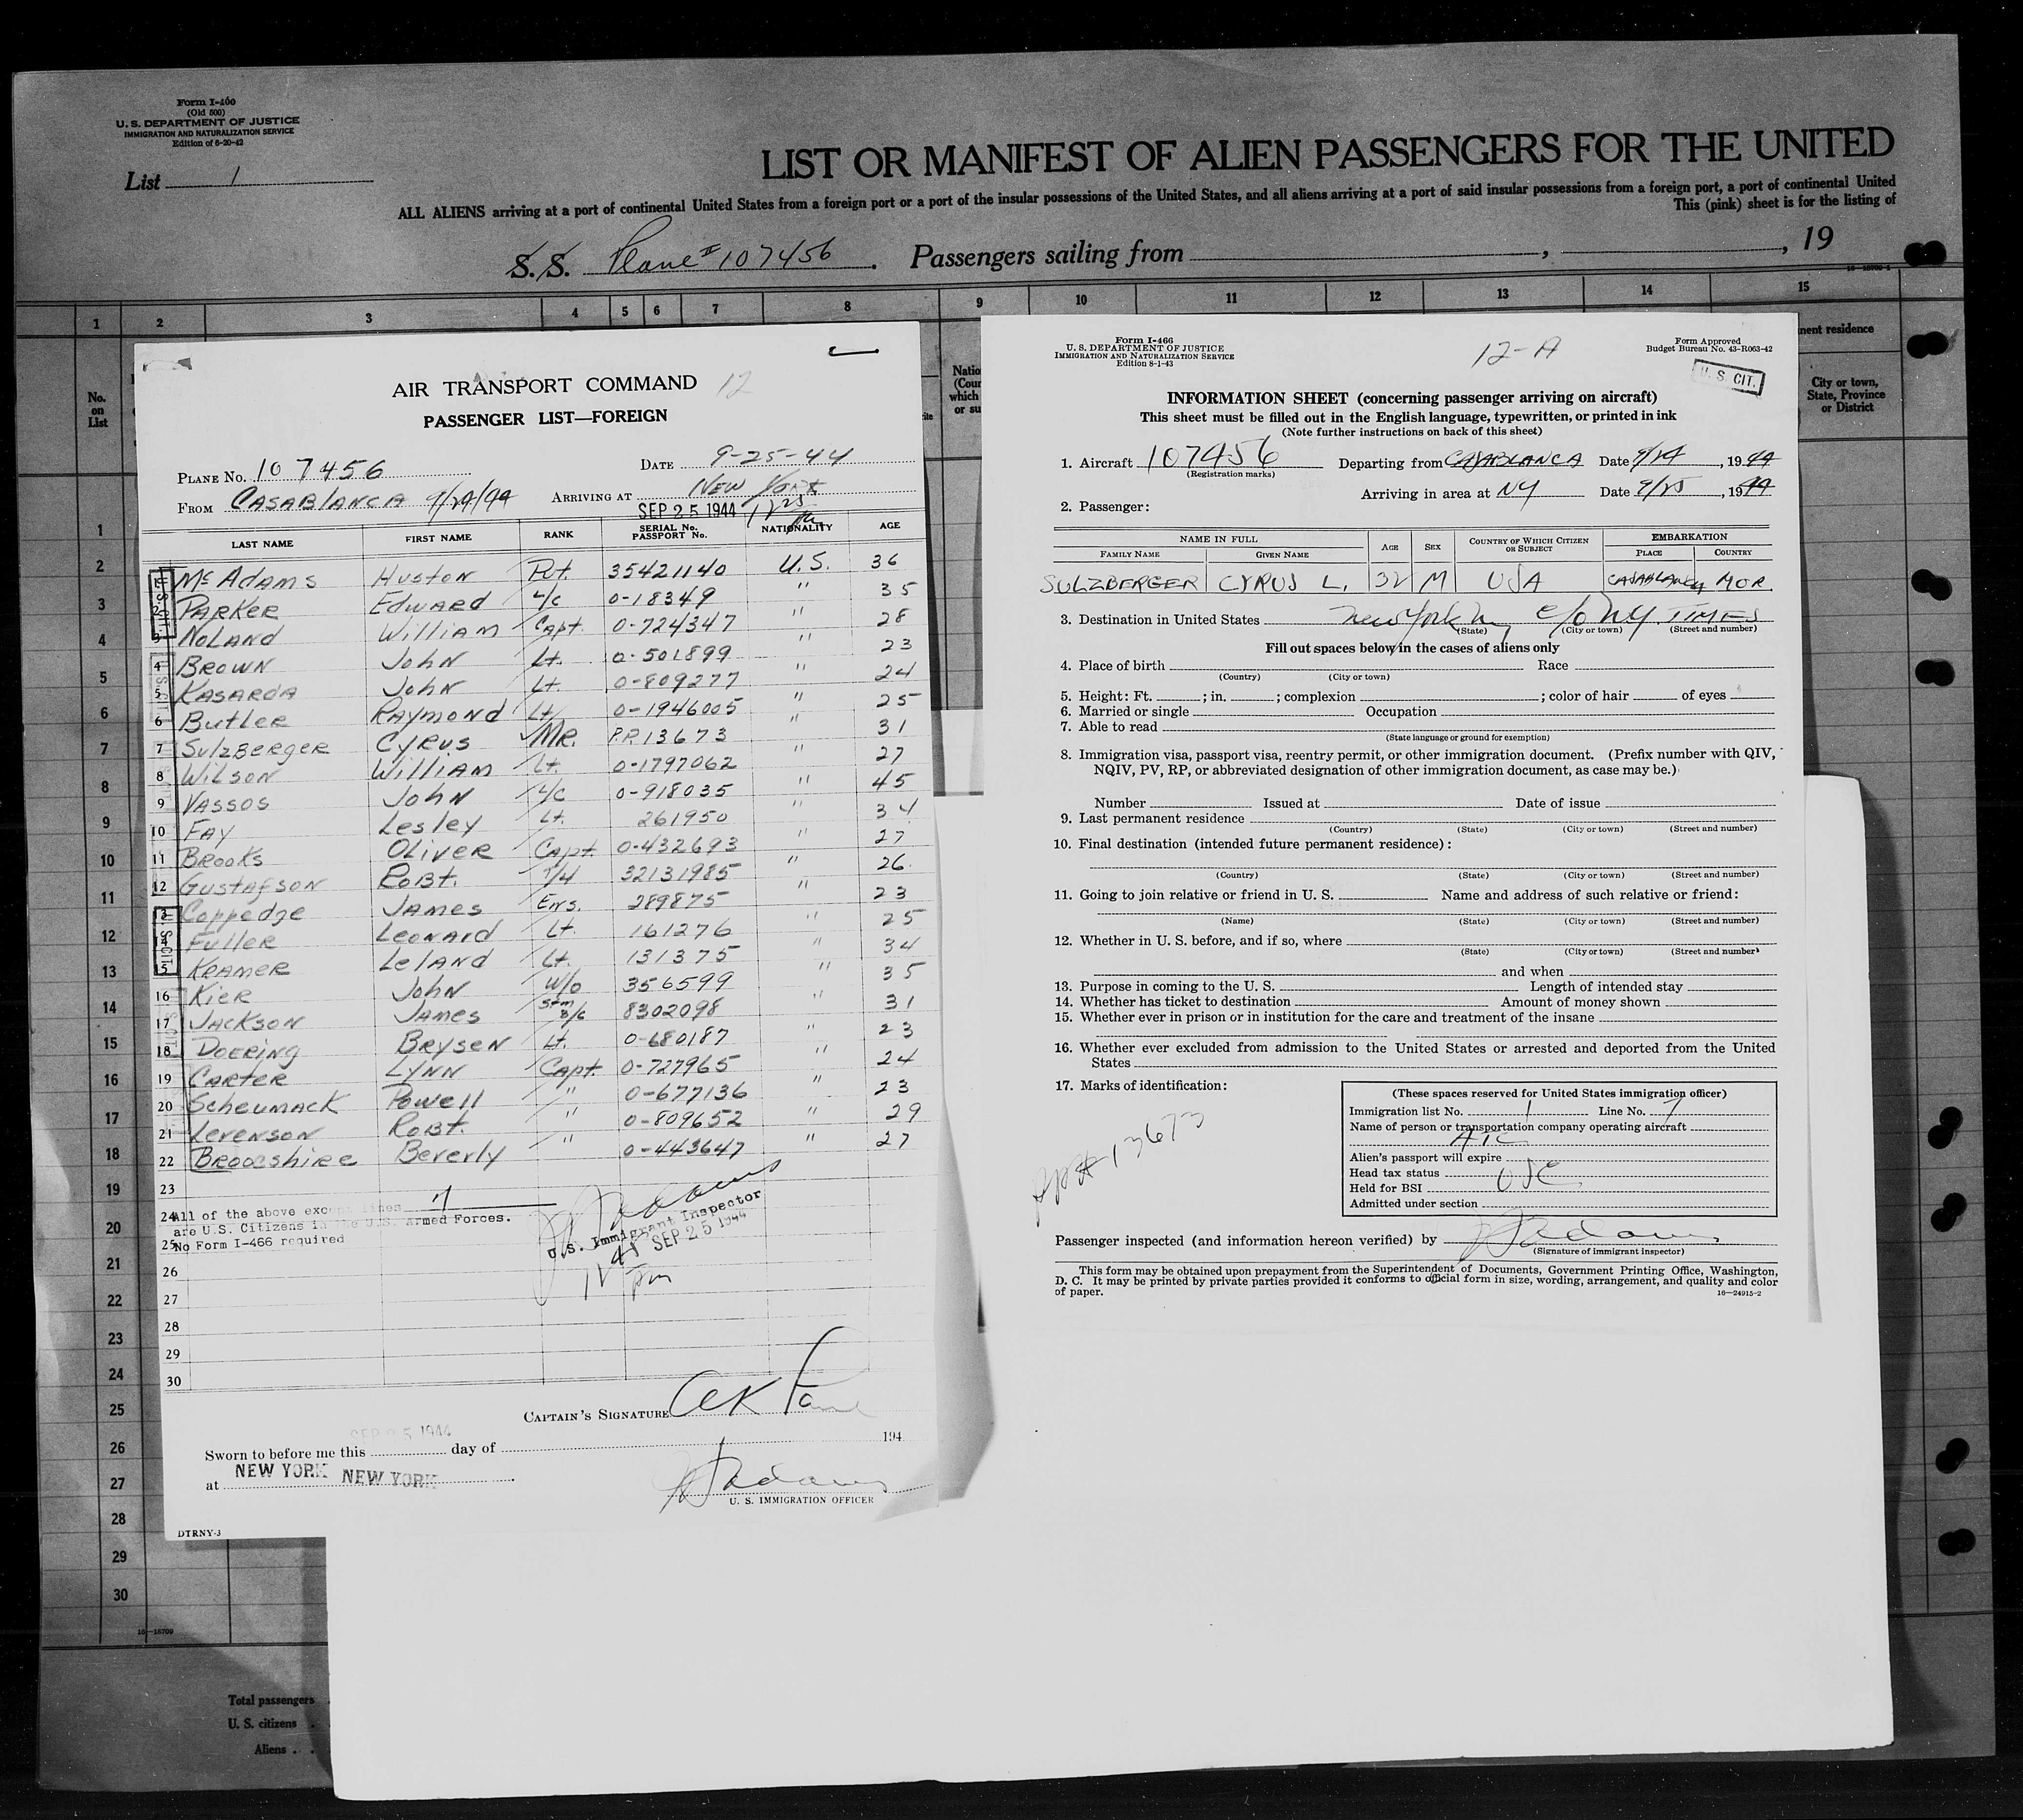 Form I-400
(Old 500)
U. S. DEPARTMENT OF JUSTICE
IMMIGRATION AND NATURALIZATION SERVICE
Edition of 6-20-42
List 1
LIST OR MANIFEST OF ALIEN PASSENGERS FOR THE UNITED
ALL ALIENS arriving at a port of continental United States from a foreign port or a port of the insular possessions of the United States, and all aliens arriving at a port of said insular possessions from a foreign port, a port of continental United
This (pink) sheet is for the listing of
S. S. Plane # 107456. Passengers sailing from , , 19
1 2 3 4 5 6 7 8 9 10 11 12 13 14 15
No. on List
nent residence
City or town, State, Province or District
AIR TRANSPORT COMMAND 12
PASSENGER LIST—FOREIGN
PLANE No. 107456 DATE 9-25-44
FROM CASABLANCA 9/24/44 ARRIVING AT NEW YORK
SEP 25 1944
LAST NAME FIRST NAME RANK SERIAL No. PASSPORT No. NATIONALITY AGE
1 McADAMS HUSTON Pvt. 35421140 U.S. 36
2 PARKER EDWARD L/C 0-18349 " 35
3 NOLAND WILLIAM Capt. 0-724347 " 28
4 BROWN JOHN Lt. 0-501899 " 23
5 KASARDA JOHN Lt. 0-809277 " 24
6 BUTLER RAYMOND Lt. 0-1946005 " 25
7 SULZBERGER CYRUS MR. P.P.13673 " 31
8 WILSON WILLIAM Lt. 0-1797062 " 27
9 VASSOS JOHN L/C 0-918035 " 45
10 FAY Lesley Lt. 261950 " 34
11 BROOKS OLIVER Capt. 0-432693 " 27
12 GUSTAFSON ROBT. T/4 32131985 " 26
13 Coppedge JAMES Ens. 289875 " 23
14 FULLER LEONARD Lt. 161276 " 25
15 KRAMER LELAND Lt. 131375 " 34
16 KIER JOHN W/O 356599 " 35
17 JACKSON JAMES Stm B/C 8302098 " 31
18 DOERING BRYSEN Lt. 0-680187 " 23
19 CARTER LYNN Capt. 0-727965 " 24
20 Scheumack Powell " 0-677136 " 23
21 LEVENSON ROBT. " 0-809652 " 29
22 Broocshire Beverly " 0-443647 " 27
23
24 All of the above except lines 7
are U.S. Citizens in the U.S. Armed Forces.
25 No Form I-466 required
U.S. Immigrant Inspector
SEP 25 1944
26
27
28
29
30
CAPTAIN'S SIGNATURE
SEP 25 1944
Sworn to before me this day of 194
at NEW YORK NEW YORK
U. S. IMMIGRATION OFFICER
DTRNY-3
Form I-466
U. S. DEPARTMENT OF JUSTICE
IMMIGRATION AND NATURALIZATION SERVICE
Edition 8-1-43
12-A
Form Approved
Budget Bureau No. 43-R063-42
U. S. CIT.
INFORMATION SHEET (concerning passenger arriving on aircraft)
This sheet must be filled out in the English language, typewritten, or printed in ink
(Note further instructions on back of this sheet)
1. Aircraft 107456 Departing from CASABLANCA Date 9/24, 1944
(Registration marks)
Arriving in area at NY Date 9/25, 1944
2. Passenger:
NAME IN FULL AGE SEX COUNTRY OF WHICH CITIZEN OR SUBJECT EMBARKATION
FAMILY NAME GIVEN NAME PLACE COUNTRY
SULZBERGER CYRUS L. 32 M USA CASABLANCA MOR.
3. Destination in United States New York NY c/o NY. TIMES
(State) (City or town) (Street and number)
Fill out spaces below in the cases of aliens only
4. Place of birth Race
(Country) (City or town)
5. Height: Ft. ; in. ; complexion ; color of hair of eyes
6. Married or single Occupation
7. Able to read
(State language or ground for exemption)
8. Immigration visa, passport visa, reentry permit, or other immigration document. (Prefix number with QIV,
NQIV, PV, RP, or abbreviated designation of other immigration document, as case may be.)
Number Issued at Date of issue
9. Last permanent residence
(Country) (State) (City or town) (Street and number)
10. Final destination (intended future permanent residence):
(Country) (State) (City or town) (Street and number)
11. Going to join relative or friend in U. S. Name and address of such relative or friend:
(Name) (State) (City or town) (Street and number)
12. Whether in U. S. before, and if so, where
(State) (City or town) (Street and number)
and when
13. Purpose in coming to the U. S. Length of intended stay
14. Whether has ticket to destination Amount of money shown
15. Whether ever in prison or in institution for the care and treatment of the insane
16. Whether ever excluded from admission to the United States or arrested and deported from the United
States
17. Marks of identification:
PP# 13673
(These spaces reserved for United States immigration officer)
Immigration list No. 1 Line No. 7
Name of person or transportation company operating aircraft
ATC
Alien's passport will expire
Head tax status USC
Held for BSI
Admitted under section
Passenger inspected (and information hereon verified) by
(Signature of immigrant inspector)
This form may be obtained upon prepayment from the Superintendent of Documents, Government Printing Office, Washington,
D. C. It may be printed by private parties provided it conforms to official form in size, wording, arrangement, and quality and color
of paper.
16—24915-2
1
2
3
4
5
6
7
8
9
10
11
12
13
14
15
16
17
18
19
20
21
22
23
24
25
26
27
28
29
30
16—16709
Total passengers
U. S. citizens
Aliens